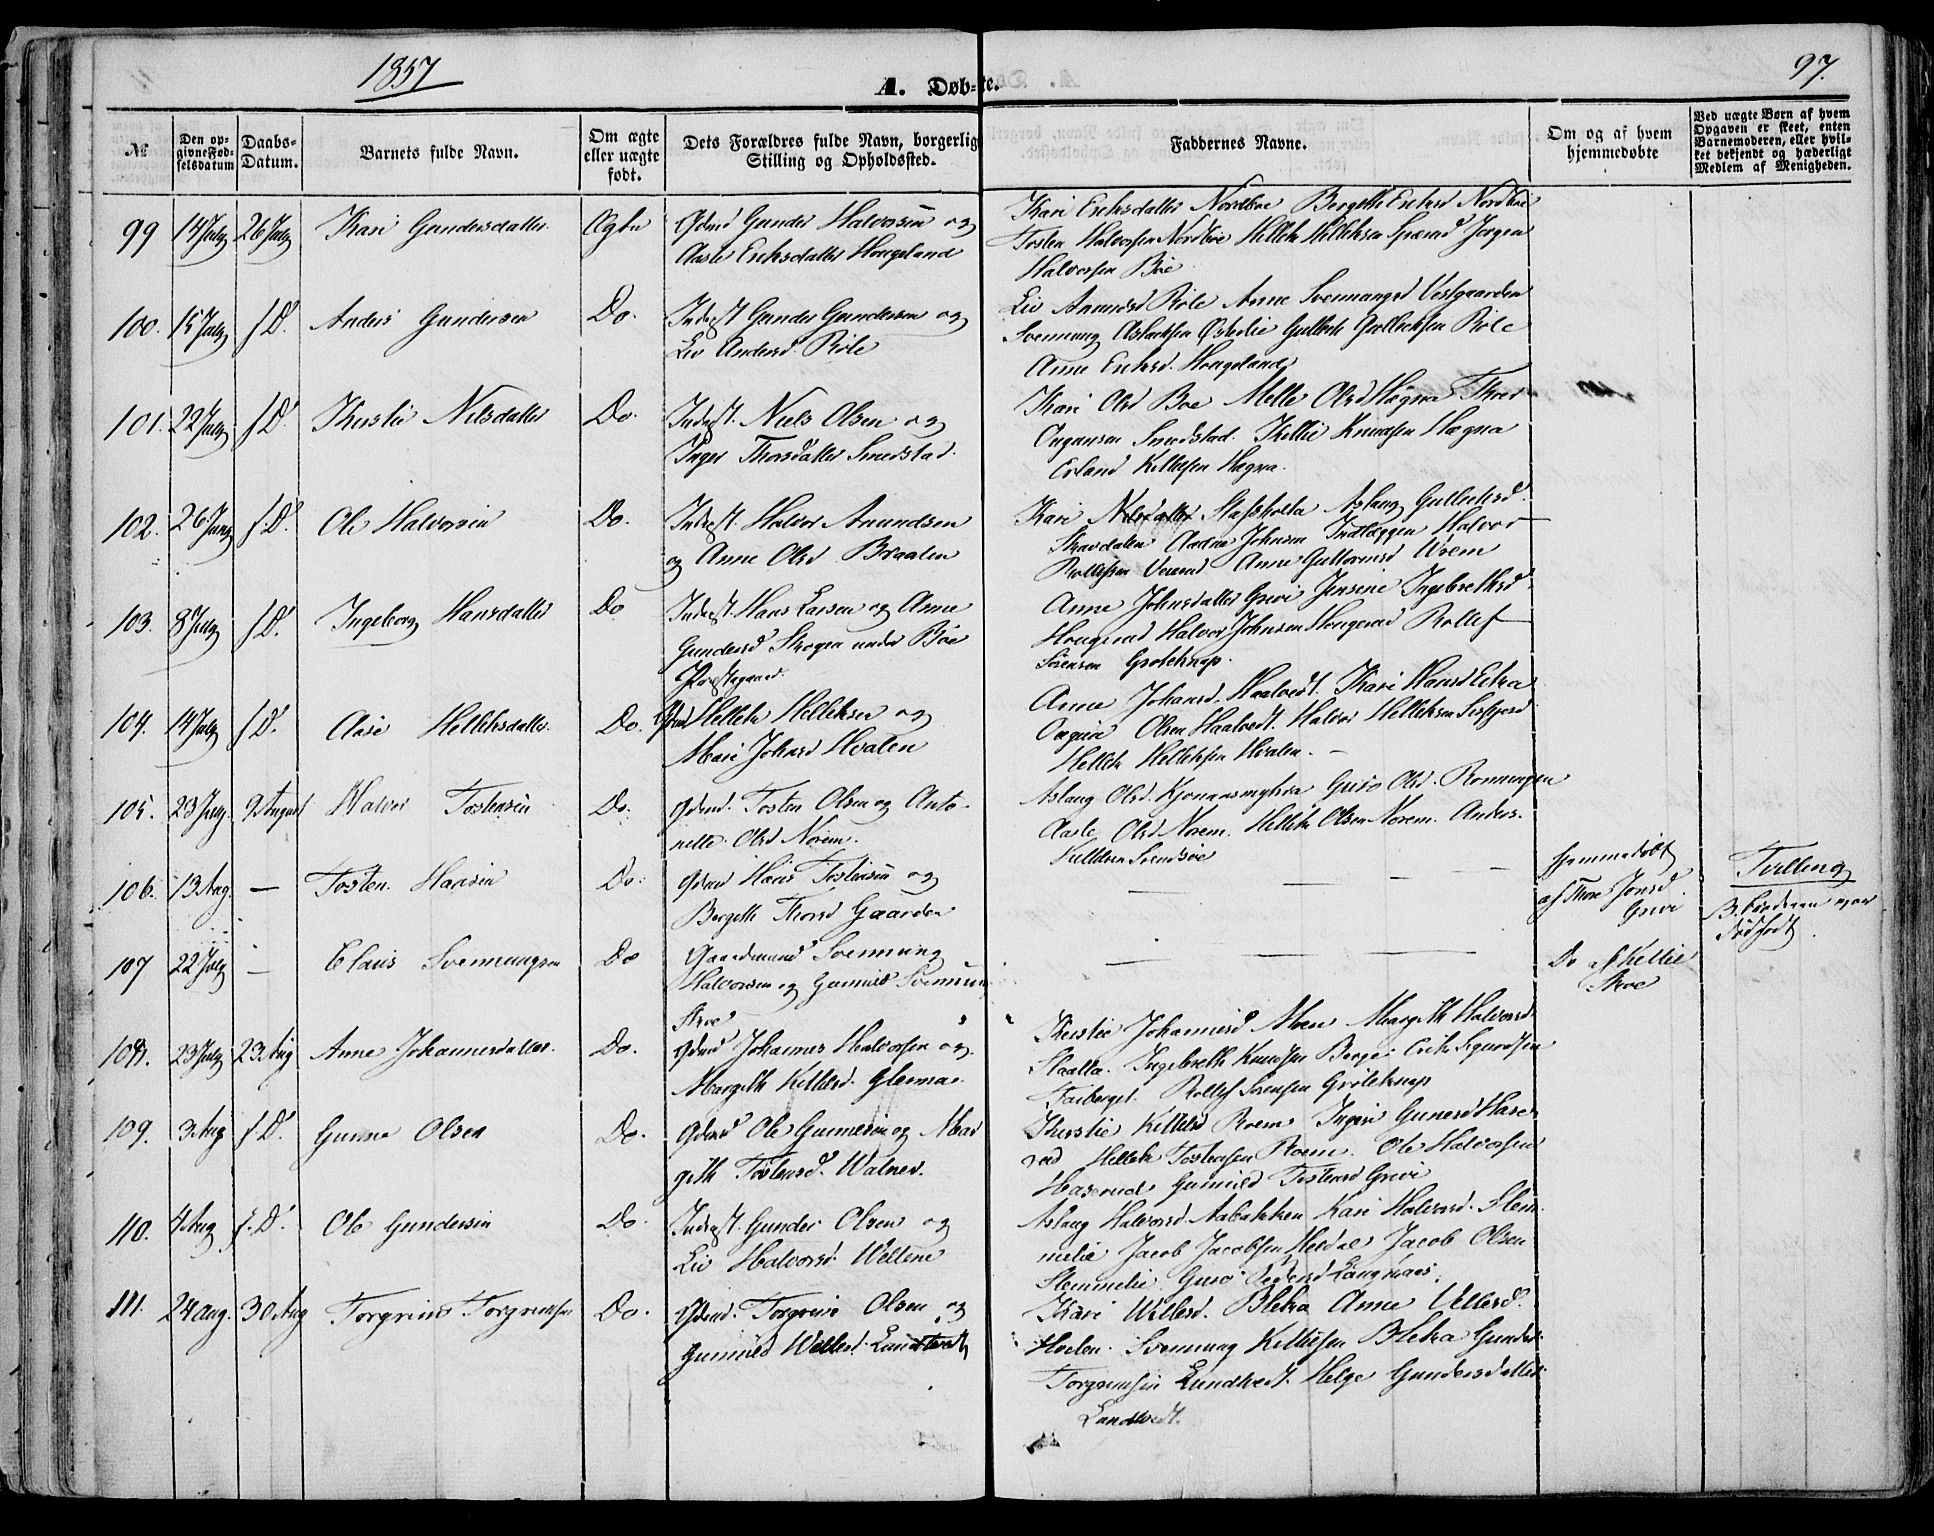 1857
97.
A. Døb-te.
№
Den op-
givne Fød-
selsdatum
Daabs-
Datum.
Barnets fulde Navn.
Om ægte
eller uægte
født.
Dets Forældres fulde Navn, borgerlig
Stilling og Opholdssted.
Faddernes Navne.
Om og af hvem
hjemmedøbte
Ved uægte Børn af hvem
Opgaven er skeet, enten
Barnemoderen, eller hvil-
ket bekjendt og hæderligt
Medlem af Menigheden.
99 14 July 26 July Kari Gundersdatter Ægte Gdmd Gunder Halvorsen og
Aasle Eriksdatter Hougeland
Kari Eriksdatter Nordboe Bergitte Eriksd Nordboe
Tosten Halvorsen Nordboe Hellek Helleksen Jørgen
Halvorsen Bøe
100. 15 July f D. Anders Gundersen Do. Indst Gunder Gundersen og
Liv Andersd. Røle
Liv Amundsd Røle Anne Svennungsd Vestgaarden
Svennung Aslaksen Østelie Gullek Gulleksen Røle
Anne Eriksd. Hougeland
101. 22 July f D. Kerstie Nilsdatter Do. Indst. Niels Olsen og
Inger Thorsdatter Smedstad.
Kari Olsd Boe Melle Olsd Hægna Thor
Smedstad. Kittil Knudsen Hægna
Erland Kittilsen Hægna.
102. 26 f. D. Ole Halvorsen Do. Indst. Halvor Amundsen
og Anne Olsd Braaten
Kari Nilsdatter Aslaug Gulleksd
Johnsen Halvor
Anne Guttormsd
103. 8 July f D. Ingeborg Hansdatter Do Indst. Hans Larsen og Anne
Gundersd Skogen under Bøe
Præstegaard.
Anne Johnsdatter Grivi Jensine Ingebrethsd
Hougerud Halvor Johnsen Hougerud Rollef
Sørensen Groteknap.
104. 14 July f D. Aase Helleksdatter Do. Gdmd Hellek Helleksen og
Mari Johnsd Hvalen
Anne Johansd. Haatvedt. Kari Hansd Eika
Olsen Haatvedt. Halvor Helleksen
Hellek Helleksen Hvalen.
105. 23 July. 9 August Halvor Tostensen Do. Gdmd. Tosten Olsen og Anto-
nette Olsd Norem.
Aslaug Olsd. Guro Olsd. Rønningen
Aasle Olsd Norem. Hellek Olsen Norem. Anders
106. 13 Aug. — Tosten Hansen Do. Gdmd Hans Tostensen og
Bergitte Thorsd Gaarden
— — — —
Hjemmedøbt
af Thone Jonsd.
Grivi
Tvilling
B. var
dødfødt.
107 22 July — Claus Svennungsen Do Gaardmand Svennung
Halvorsen og Gunnild Svennun
Skoe
— — — —
Do af Kittil
Skoe
108. 23 July 23 Aug Anne Johannesdatter. Do. Gdmd Johannes Halvorsen og
Margith Kittilsd.
Kerstie Johannesd Moen Margith Halvorsd
Ingebreth Knudsen Berge Erik Sigurdsen
Rollef Sørensen Grøteknap
109. 3 Aug f D. Gunne Olsen Do. Gdmd Ole Gunnesen og Mar
gith Tostensd. Walnes.
Kerstie Kittilsd Roem Ingeri Gunnesd Hase
rud Hellek Tostensen Roem. Ole Halvorsen
Haserud Gunnild Tostensd Grivi
110. 4 Aug f. D. Ole Gundersen Do. Indst. Gunder Olsen og
Liv Halvorsd.
Aslaug Halvorsd. Aabakken Kari Halvorsd. Stem
melie Jacob Jacobsen Jacob Olsen
Stemmelie Guro Pedersd Langnæs.
111. 24 aug. 30 Aug Torgrim Torgrimsen Do. Gdmd. Torgrim Olsen og
Gunnild Wetlesd. Lundtvedt
Kari Wetlesd. Bleka Anne Vetlesd.
Svennung Kittilsen Bleka Gunder
Torgrimsen Lundtvedt. Helge Gundersdatter
Lundtvedt.